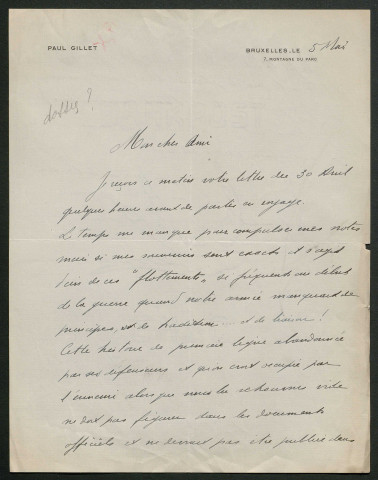 PAUL GILLET
BRUXELLES, LE 5 Mai
2, MONTAGNE DU PARC
dossier ?
Mon cher Ami
Je reçois ce matin votre lettre du 30 Avril
quelques heures avant de partir en voyage.
Le temps me manque pour compulser mes notes
mais si mes souvenirs sont exacts il s'agit
d'un de ces "flottements" si fréquents au début
de la guerre quand notre armée manquait de
principes, et de tradition .... et de liaison !
Cette histoire de première ligne abandonnée
par ses défenseurs et qu'on croit occupée par
l'ennemi alors que nous la retrouvons vide
ne doit pas figurer dans les documents
officiels et ne devrait pas être publiée dans